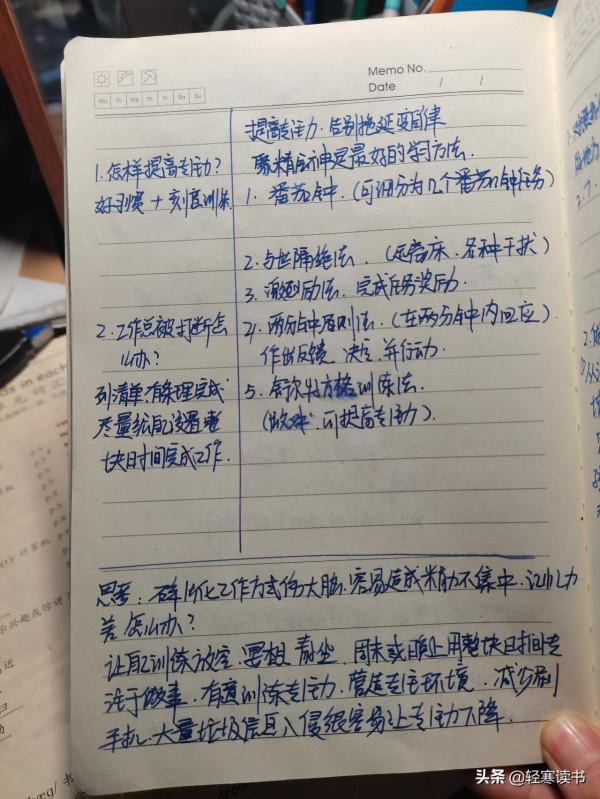 Memo No.
Date / /
Mo Tu We Th Fr Sa Su
提高专注力.告别拖延变自律
聚精会神是最好的学习方法.
1.怎样提高专注力?
好习惯+刻意训练
2.工作总被打断怎
么办?
列清单.有条理完成
尽量给自己设置整
块时间完成工作.
1.番茄钟.(可细分为几个番茄钟任务)
2.与世隔绝法.(远离床.各种干扰)
3.激励法.完成任务奖励.
4.两分钟原则法.(在两分钟内回应)
作出反馈 决定.并行动.
5.舒尔特方格训练法.
(游戏.可提高专注力).
思考:碎片化工作方式伤大脑.容易造成精力不集中.记忆力
差.怎么办?
让自己训练放空.冥想.静坐.周末或晚上用整块时间专
注于做事.有意训练专注力.营造专注环境.减少刷
手机.大量垃圾信息入侵很容易让专注力下降.
头条@轻寒读书